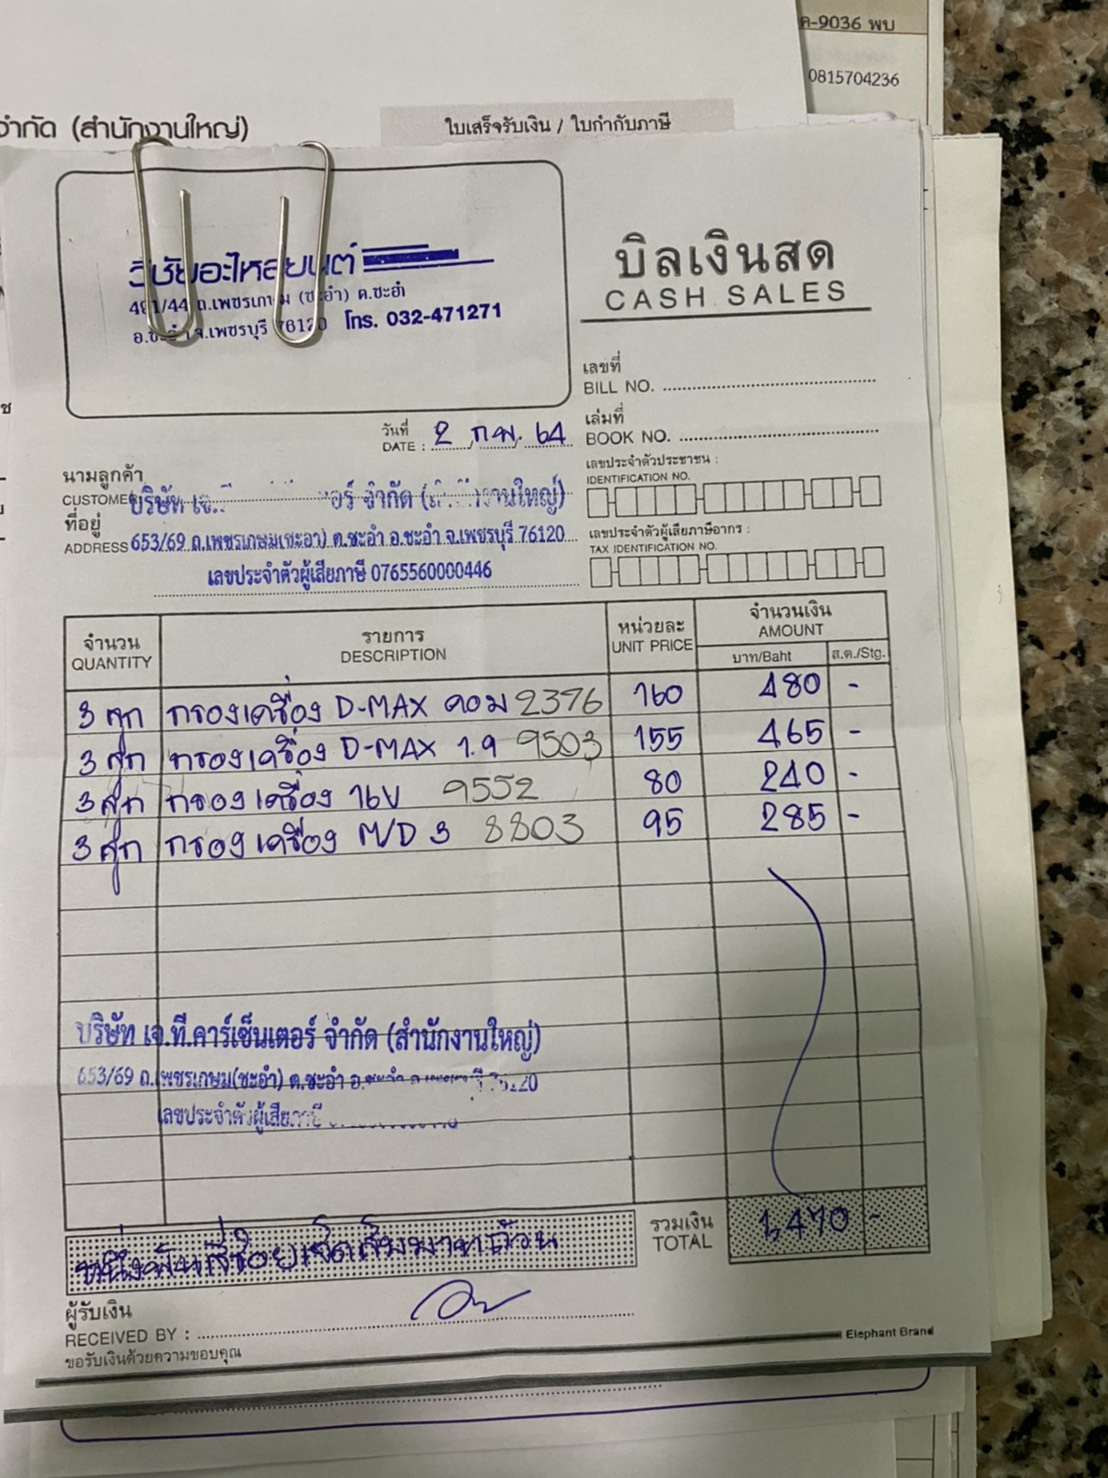 ค-9036 พบ
0815704236
จำกัด (สำนักงานใหญ่)
ใบเสร็จรับเงิน / ใบกำกับภาษี
วิชัยอะไหล่ยนต์
491/44 ถ.เพชรเกษม (ชะอำ) ต.ชะอำ
อ.ชะอำ จ.เพชรบุรี 76120 โทร. 032-471271
บิลเงินสด
CASH SALES
เลขที่
BILL NO.
วันที่
DATE : 2 ก.พ. 64
เล่มที่
BOOK NO.
นามลูกค้า
CUSTOMER บริษัท เจ. อร์ จำกัด (สำนักงานใหญ่)
ที่อยู่
ADDRESS 653/69 ถ.เพชรเกษม(ชะอำ) ต.ชะอำ อ.ชะอำ จ.เพชรบุรี 76120
เลขประจำตัวผู้เสียภาษี 0765560000446
เลขประจำตัวประชาชน :
IDENTIFICATION NO.
เลขประจำตัวผู้เสียภาษีอากร :
TAX IDENTIFICATION NO.
จำนวน รายการ หน่วยละ จำนวนเงิน
QUANTITY DESCRIPTION UNIT PRICE AMOUNT
บาท/Baht ส.ต./Stg.
3 ลูก กรองเครื่อง D-MAX คอม 2376 160 480 -
3 ลูก กรองเครื่อง D-MAX 1.9 9503 155 465 -
3 ลูก กรองเครื่อง 16V 9552 80 240 -
3 ลูก กรองเครื่อง M/D 3 8803 95 285 -
บริษัท เจ.ที.คาร์เซ็นเตอร์ จำกัด (สำนักงานใหญ่)
653/69 ถ.เพชรเกษม(ชะอำ) ต.ชะอำ อ.ชะอำ
เลขประจำตัวผู้เสียภาษี
หนึ่งพันสี่ร้อยเจ็ดสิบบาทถ้วน
รวมเงิน
TOTAL 1,470 -
ผู้รับเงิน
RECEIVED BY :
ขอรับเงินด้วยความขอบคุณ
Elephant Brand